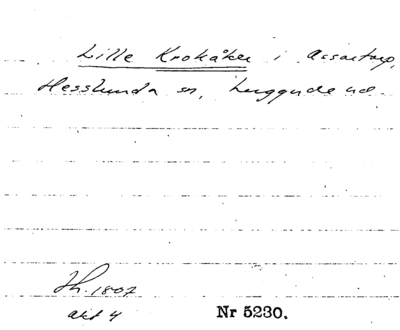 Lille Krokåker i Assartorp,
Hesslunda sn, Luggude hd.
Sh. 1807
akt 4
Nr 5230.